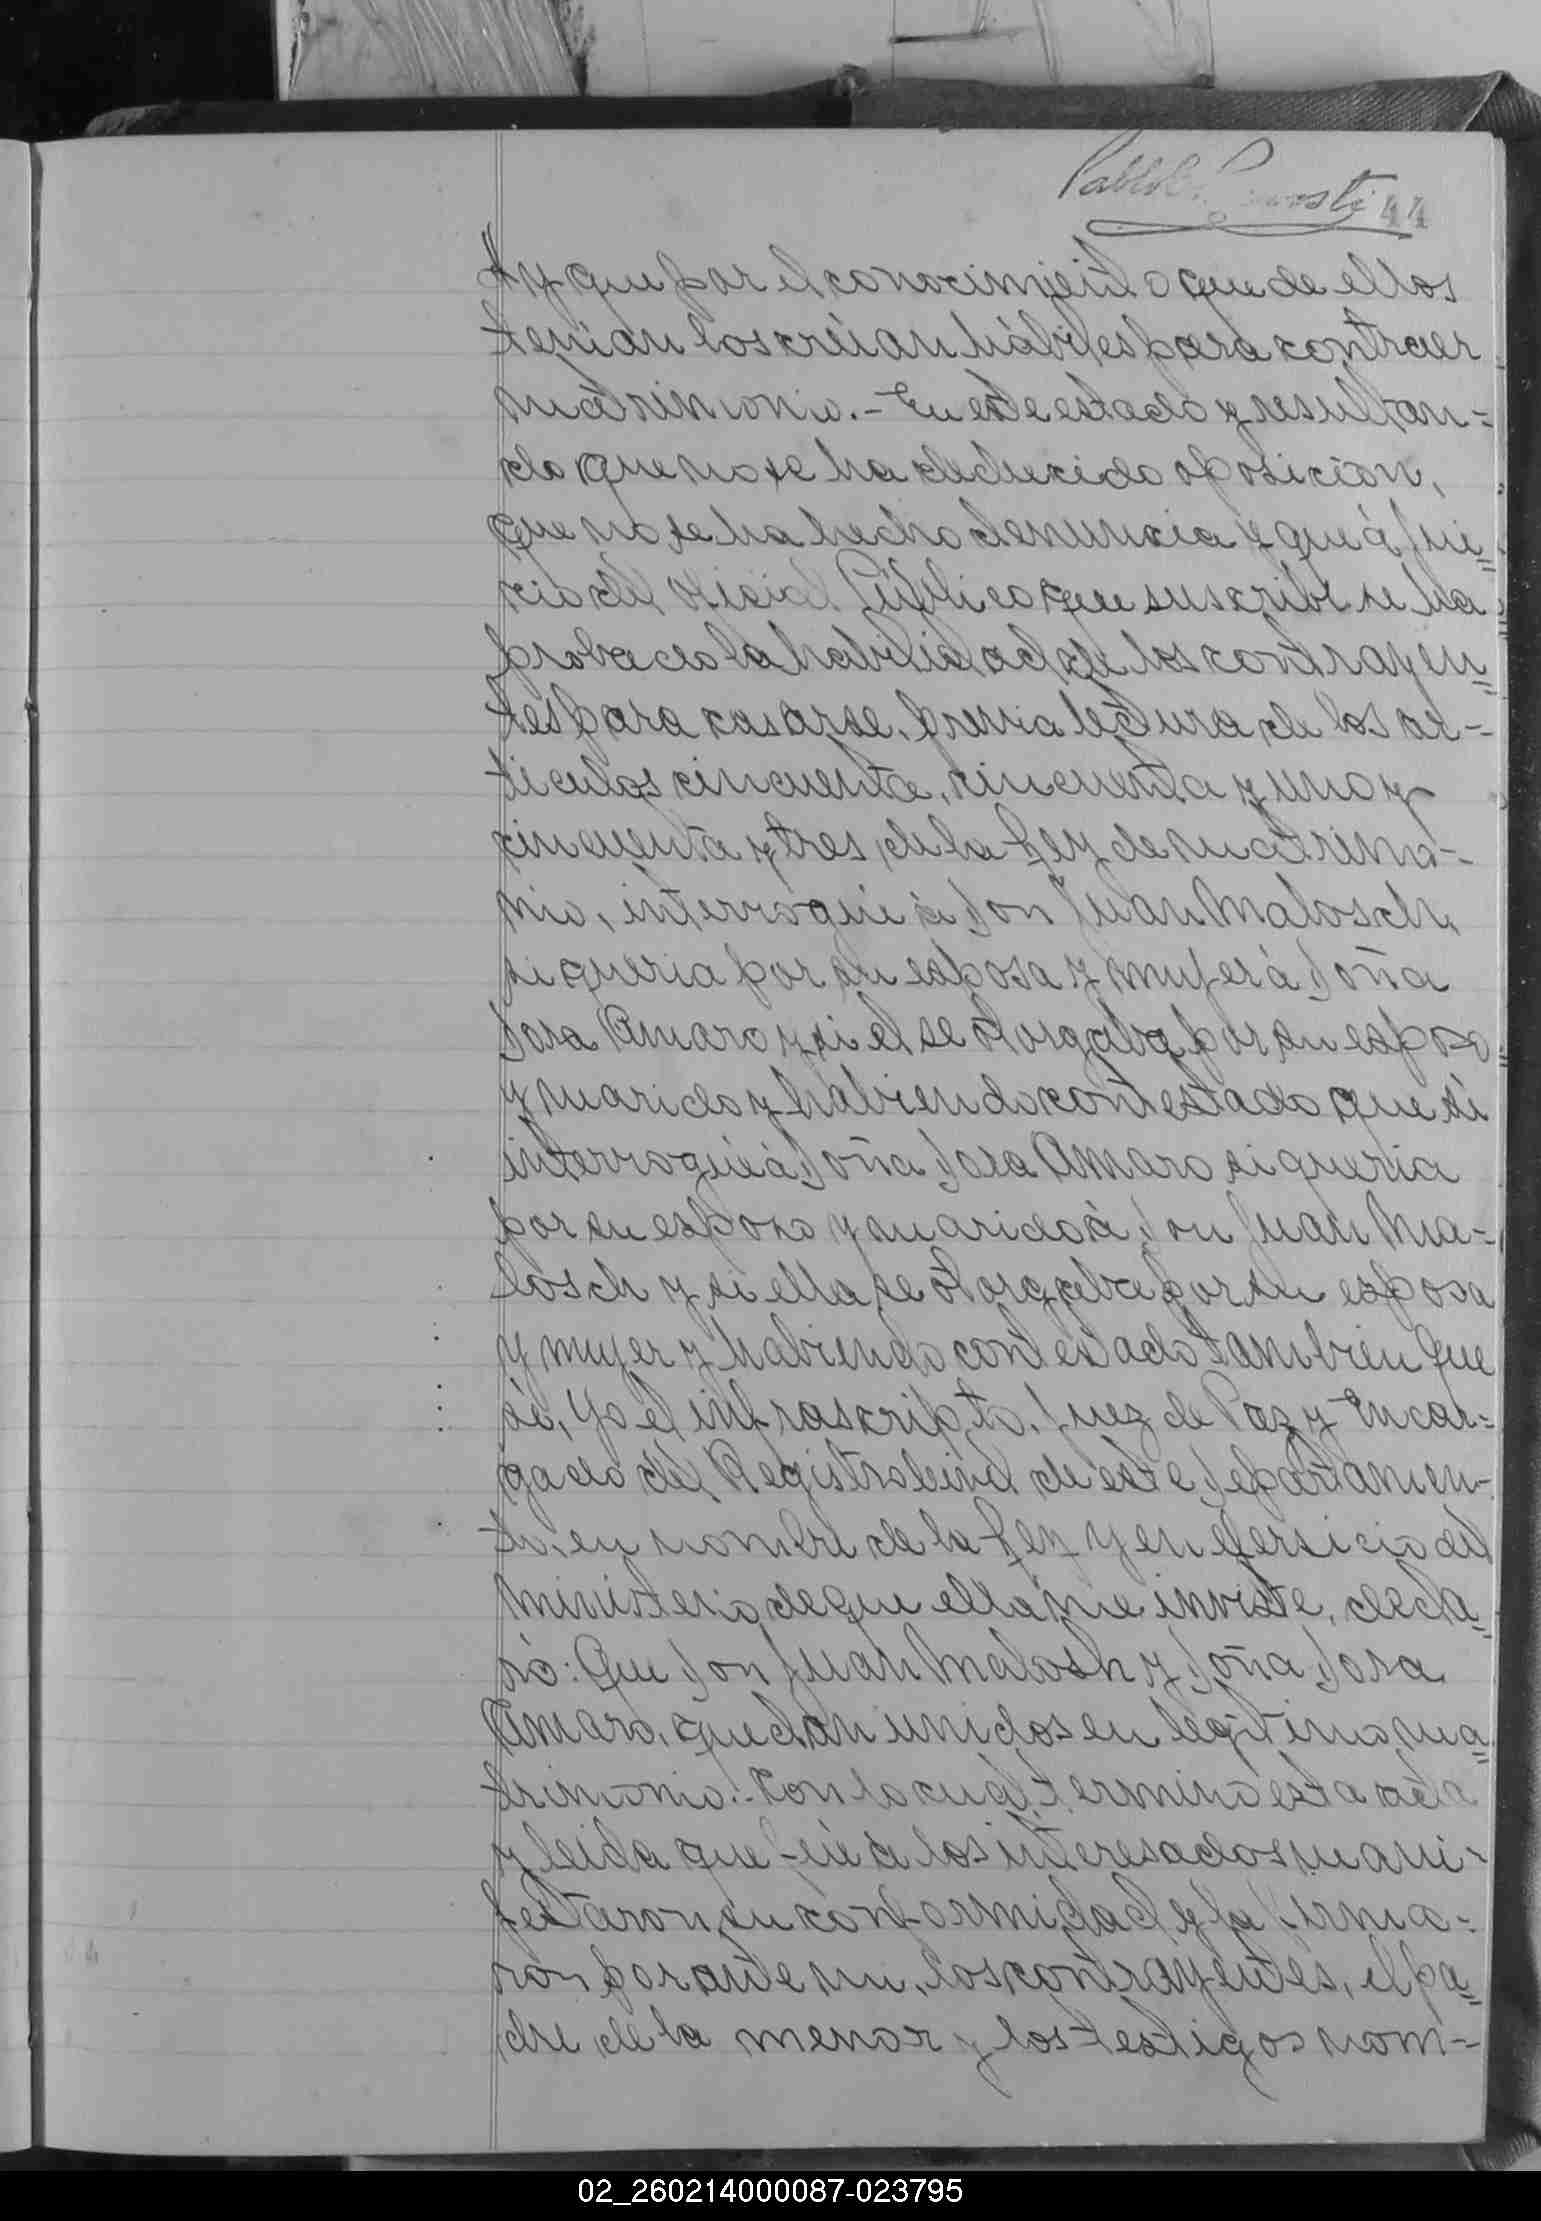 44
y que por el conocimiento que de ellos
tenian los creian hábiles para contraer
matrimonio.- En este estado y resultan=
do que no se ha deducido oposición,
que no se ha hecho denuncia y que á jui=
cio del Oficial Público que suscribe se ha
probado la habilidad de los contrayen=
tes para casarse, previa lectura de los ar-
ticulos cincuenta, cincuenta y uno y
cincuenta y tres, de la Ley de matrimo-
nio, interrogué á Don Juan Malosch,
si queria por su esposa y mujer á Doña
Dora Amaro y si el se otorgaba por su esposo
y marido y habiendo contestado que si
interrogué á Doña Dora Amaro si queria
por su esposo y marido á Don Juan Ma=
losch y si ella se otorgaba por su esposa
y mujer y habiendo contestado tambien que
si, Yo el infrascripto, Juez de Paz y Encar=
gado del Registro Civil de este Departamen-
to, en nombre de la Ley y en ejersicio del
ministerio de que ella me inviste, decla=
ró: Que Don Juan Malosh y Doña Dora
Amaro, quedan unidos en legítimo ma=
trimonio. Con lo cual terminó esta acta
y leida que fué á los interesados mani-
festaron su conformidad y la firma=
ron por ante mi, los contrayentes, el pa=
dre de la menor y los testigos nom-
02_260214000087-023795